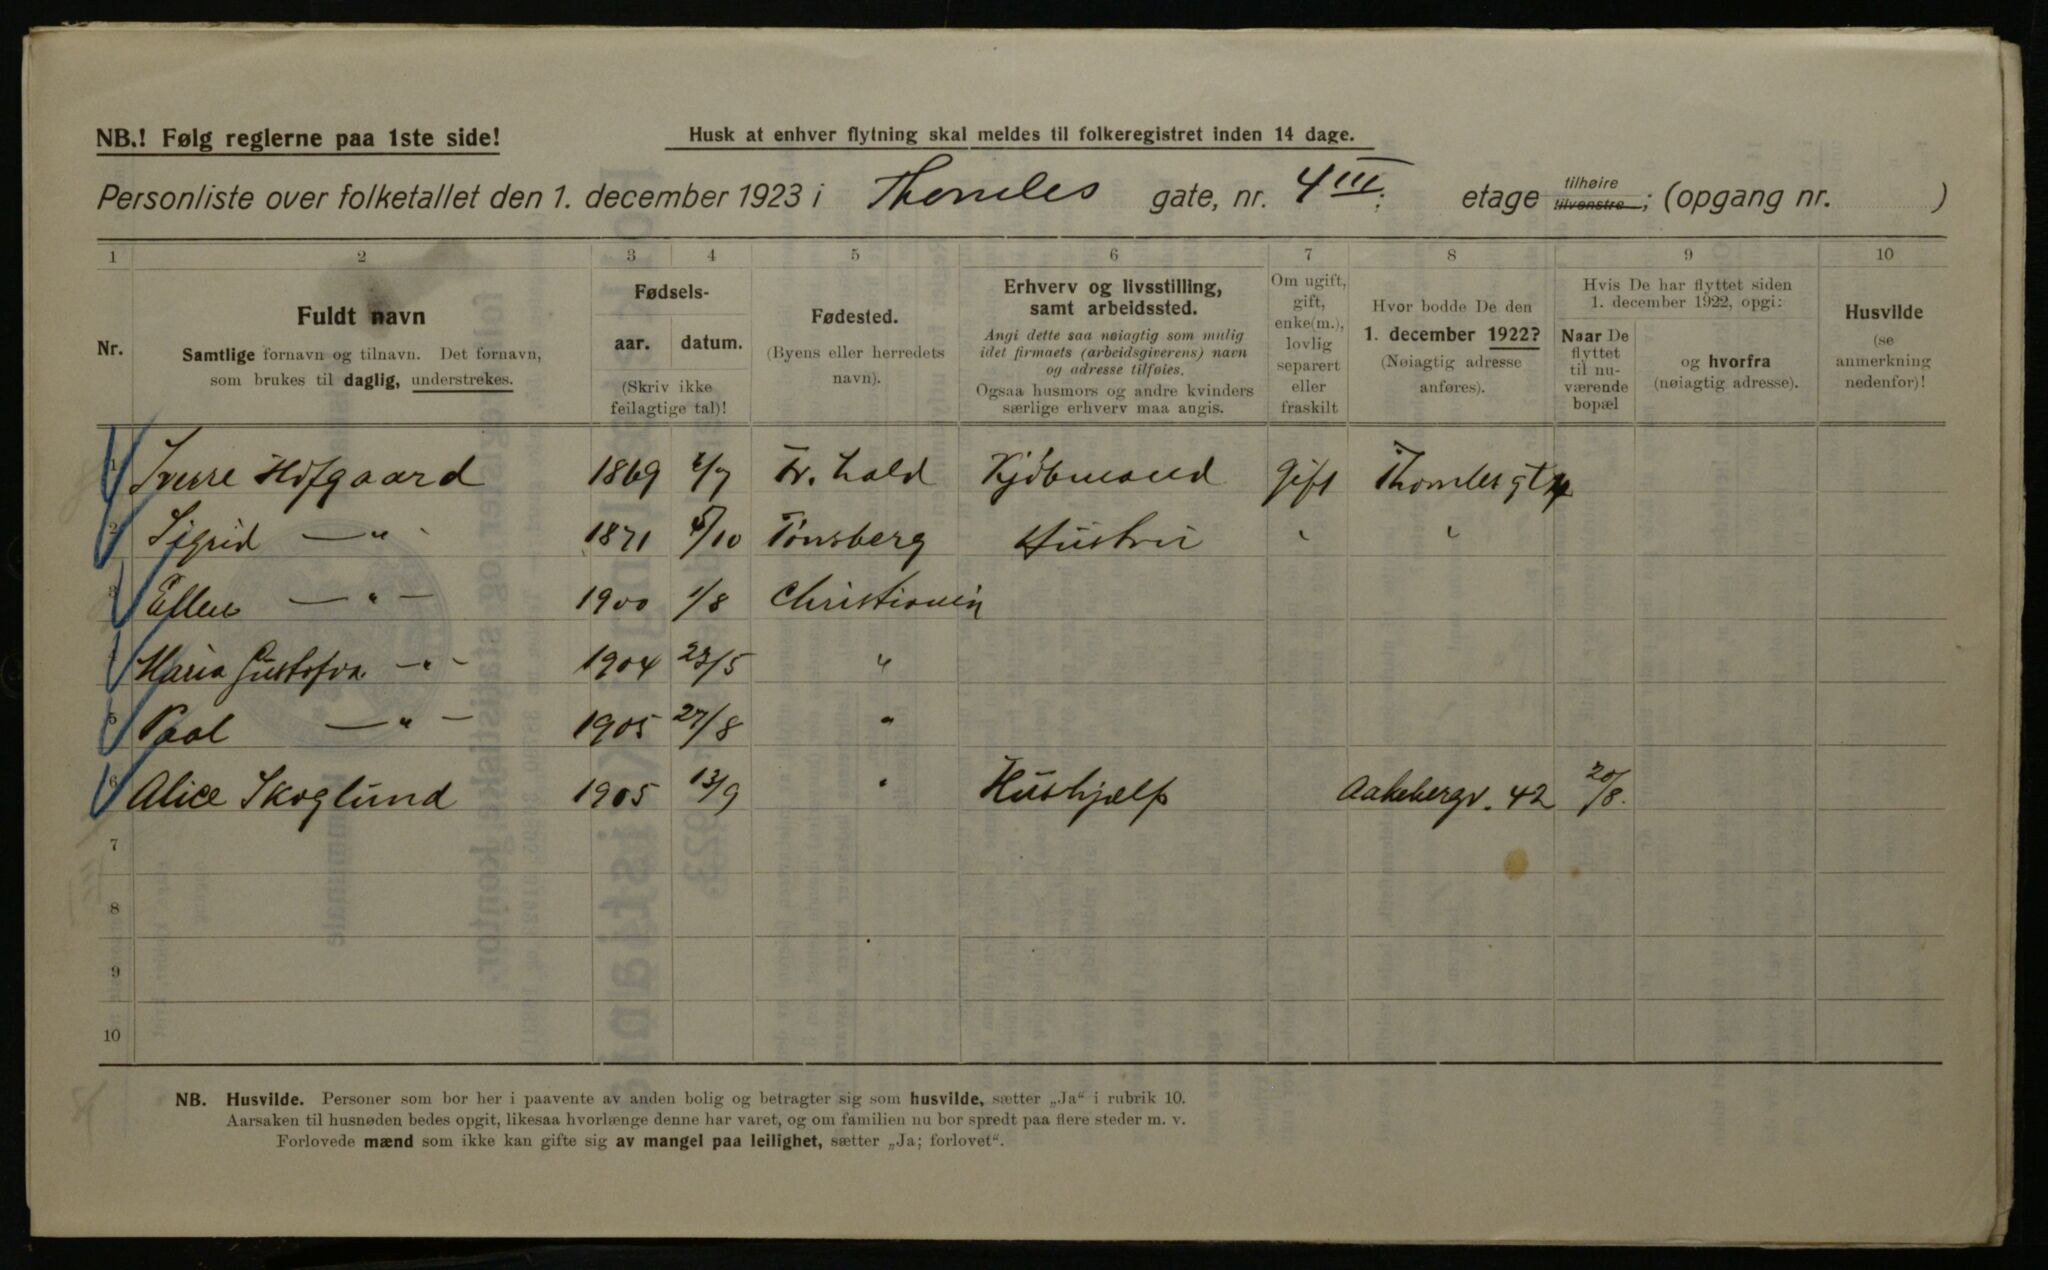 NB.! Følg reglerne paa 1ste side!
Husk at enhver flytning skal meldes til folkeregistret inden 14 dage.
Personliste over folketallet den 1. december 1923 i Thomles gate, nr. 4 III; etage tilhøire tilvenstre; (opgang nr. )
1 2 3 4 5 6 7 8 9 10
Nr.
Fuldt navn
Samtlige fornavn og tilnavn. Det fornavn,
som brukes til daglig, understrekes.
Fødsels-
aar. datum.
(Skriv ikke
feilagtige tal)!
Fødested.
(Byens eller herredets
navn).
Erhverv og livsstilling,
samt arbeidssted.
Angi dette saa nøiagtig som mulig
idet firmaets (arbeidsgiverens) navn
og adresse tilføies.
Ogsaa husmors og andre kvinders
særlige erhverv maa angis.
Om ugift,
gift,
enke(m.),
lovlig
separert
eller
fraskilt
Hvor bodde De den
1. december 1922?
(Nøiagtig adresse
anføres).
Hvis De har flyttet siden
1. december 1922, opgi:
Naar De
flyttet
til nu-
værende
bopæl
og hvorfra
(nøiagtig adresse).
Husvilde
(se
anmerkning
nedenfor)!
1 Sverre Hofgaard 1869 2/7 Fr. hald Kjøbmand Gift Thomles gt 4
2 Sigrid — " - 1871 5/10 Tønsberg Hustru " "
3 Ellen — " — 1900 1/8 Christiania
4 Maria Gustafva — " - 1904 23/5 "
5 Paal — " — 1905 27/8 "
6 Alice Skoglund 1905 13/9 " Hushjælp Aakebergv. 42 20/8.
7
8
9
10
NB. Husvilde. Personer som bor her i paavente av anden bolig og betragter sig som husvilde, sætter „Ja“ i rubrik 10.
Aarsaken til husnøden bedes opgit, likesaa hvorlænge denne har varet, og om familien nu bor spredt paa flere steder m. v.
Forlovede mænd som ikke kan gifte sig av mangel paa leilighet, sætter „Ja; forlovet“.